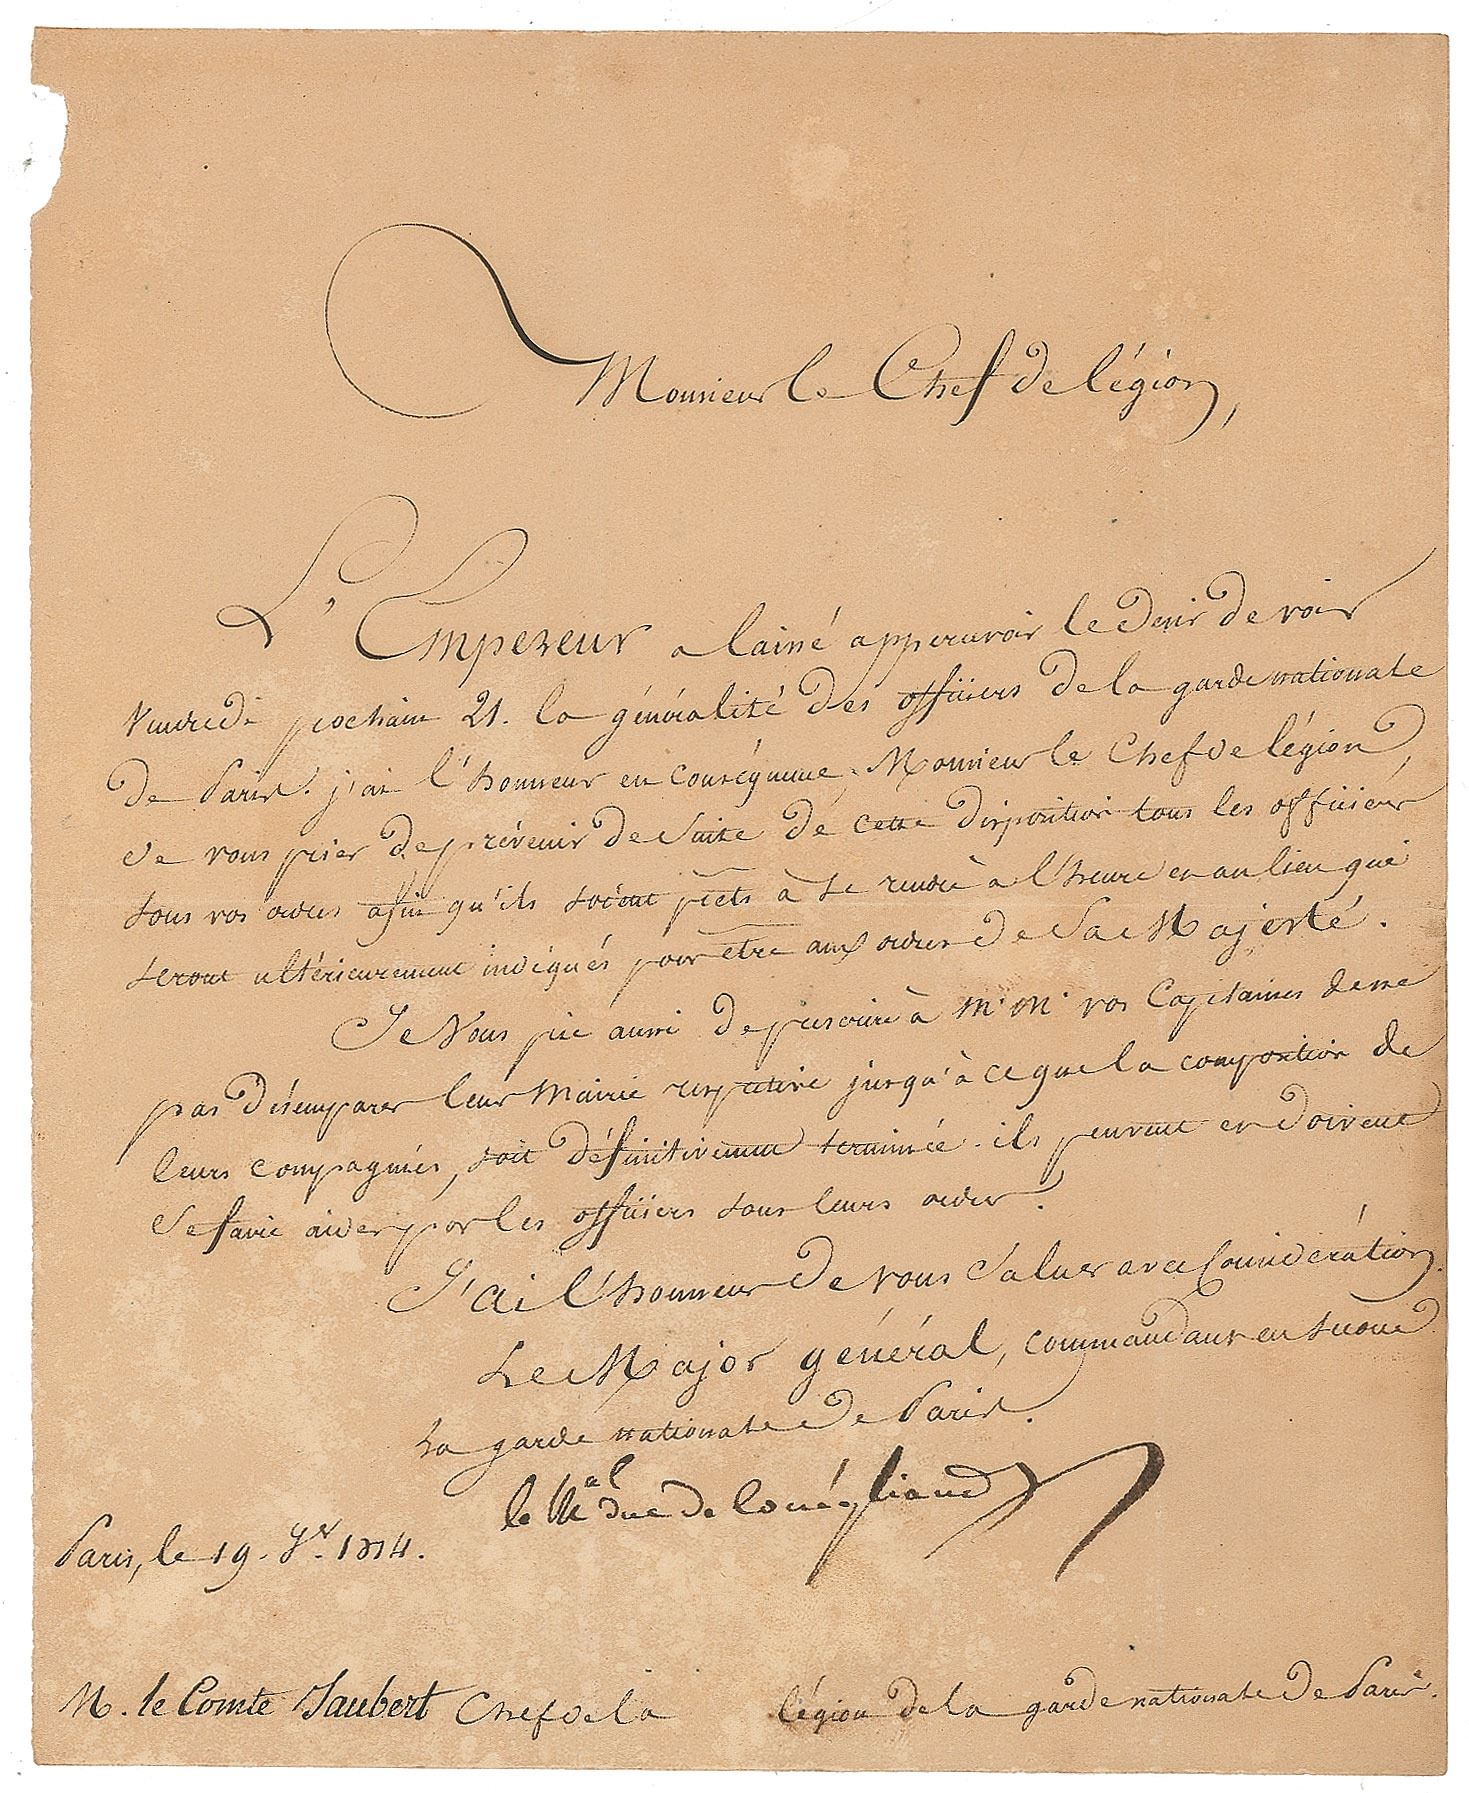 Monsieur le Chef de légion,
L'Empereur a laissé appercevoir le desir de voir
vendredi prochain 21. la généralité des officiers de la garde nationale
de Paris. j'ai l'honneur en conséquence, Monsieur le Chef de légion,
de vous prier de prévenir de suite de cette disposition tous les officiers
sous vos ordres afin qu'ils soient prêts à se rendre à l'heure et au lieu qui
seront ultérieurement indiqués pour être aux ordres de Sa Majesté.
Je Vous prie aussi de prescrire à M.M. vos Capitaines de ne
pas désemparer leur Mairie respective jusqu'à ce que la composition de
leurs compagnies, soit définitivement terminée. ils peuvent et doivent
se faire aider par les officiers sous leurs ordres.
J'ai l'honneur de vous saluer avec Considération.
Le Major général, commandant en second
la garde nationale de Paris.
le Mal duc de Conégliano
Paris, le 19. Jer. 1814.
M. le Comte Jaubert Chef de la légion de la garde nationale de Paris.